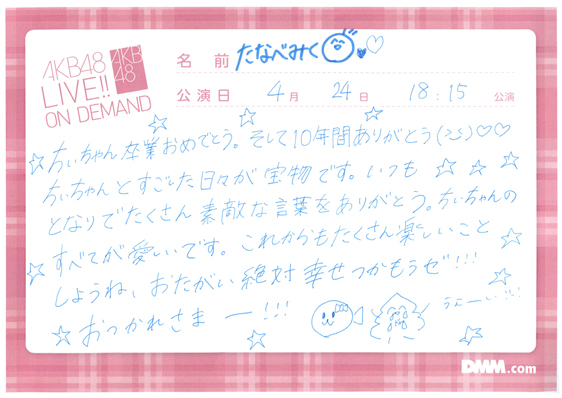 AKB48
LIVE!!
ON DEMAND
AKB
48
名 前 たなべみく
公演日 4月 24日 18:15 公演
ちぃちゃん卒業おめでとう。そして10年間ありがとう
ちぃちゃんとすごした日々が宝物です。いつも
となりでたくさん素敵な言葉をありがとう。ちぃちゃんの
すべてが愛しいです。これからもたくさん楽しいこと
しようね、おたがい絶対幸せつかもうぜ!!!
おつかれさまー!!!
DMM.com